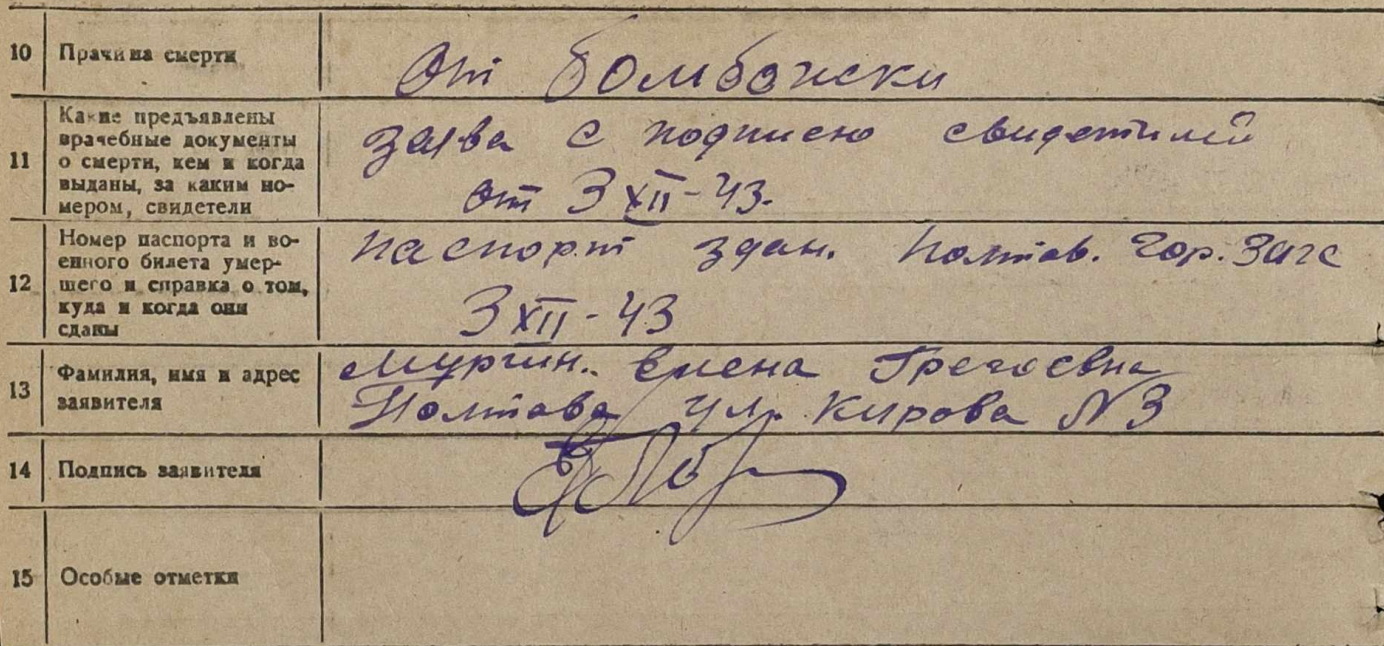 10 Причина смерти От бомбожски
11 Какие предъявлены
врачебные документы
о смерти, кем и когда
выданы, за каким но-
мером, свидетели
заява с подписею свидетилей
от 3 XII-43.
12 Номер паспорта и во-
енного билета умер-
шего и справка о том,
куда и когда они
сданы
паспорт здан. Полтав. Гор. Загс
3 XII - 43
13 Фамилия, имя и адрес
заявителя
Елена
Полтава ул. Кирова N3
14 Подпись заявителя
15 Особые отметки